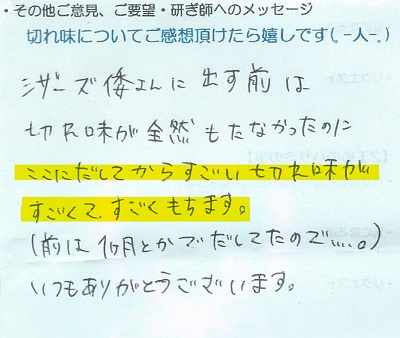 ・その他ご意見、ご要望・研ぎ師へのメッセージ
切れ味についてご感想頂けたら嬉しです(.-人-.)
シザーズ倭さんに出す前は
切れ味が全然もたなかったのに
ここにだしてからすごい切れ味が
すごくて、すごくもちます。
(前は1ヶ月とかでだしてたので....。)
いつもありがとうございます。